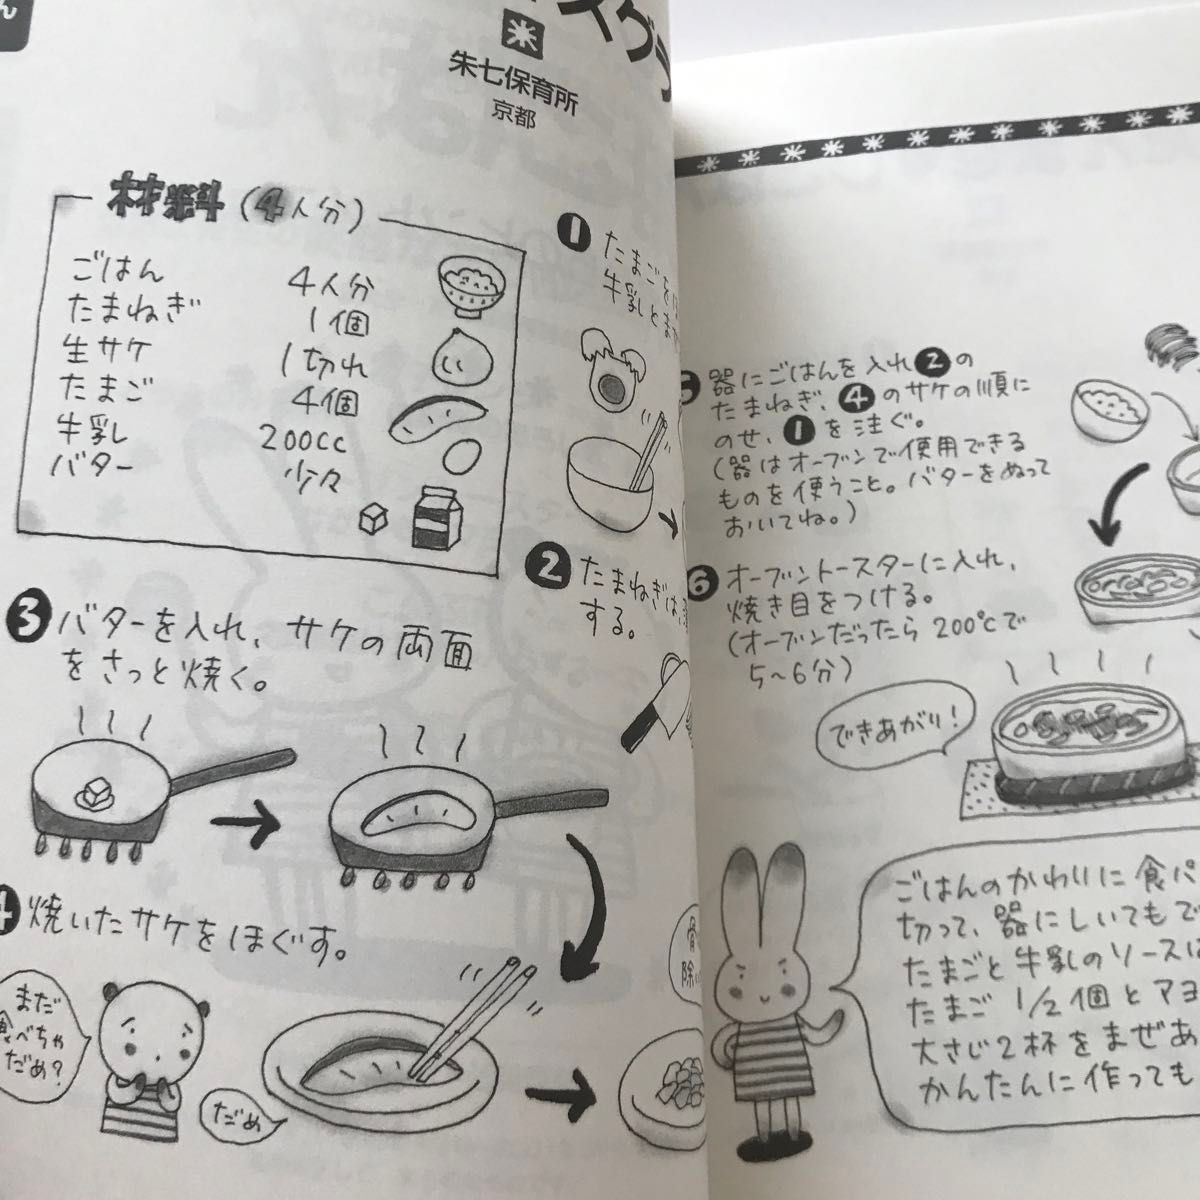 ん
スグラ
朱七保育所
京都
材料(4人分)
ごはん 4人分
たまねぎ 1個
生サケ 1切れ
たまご 4個
牛乳 200cc
バター 少々
1 たまご
牛乳と
2 たまねぎは
する。
3 バターを入れ、サケの両面
をさっと焼く。
4 焼いたサケをほぐす。
まだ
食べちゃ
だめ?
だめ
骨
除
5 器にごはんを入れ2の
たまねぎ、4のサケの順に
のせ、1を注ぐ。
(器はオーブンで使用できる
ものを使うこと。バターをぬって
おいてね。)
6 オーブントースターに入れ、
焼き目をつける。
(オーブンだったら200℃で
5〜6分)
できあがり!
ごはんのかわりに食パ
切って、器にしいてもで
たまごと牛乳のソースは
たまご1/2個とマヨ
大さじ2杯をまぜあ
かんたんに作っても